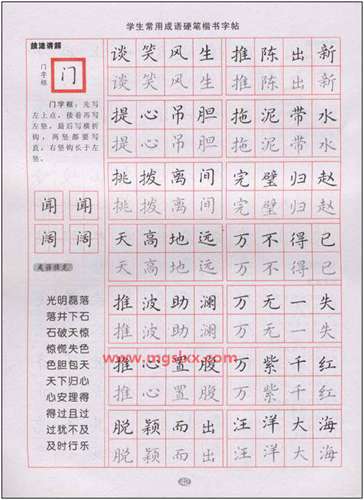 学生常用成语硬笔楷书字帖
技法讲解
门字框
门
门字框：先写
左上点，接着再写
左竖，最后写横折
钩，两竖都要写
直，右竖钩长于左
竖。
闻 闻
阔 阔
成语接龙
光明磊落
落井下石
石破天惊
惊慌失色
色胆包天
天下归心
心安理得
得过且过
过犹不及
及时行乐
谈笑风生 推陈出新
谈笑风生 推陈出新
提心吊胆 拖泥带水
提心吊胆 拖泥带水
挑拨离间 完璧归赵
挑拨离间 完璧归赵
天高地远 万不得已
天高地远 万不得已
推波助澜 万无一失
推波助澜 万无一失
推心置腹 万紫千红
推心置腹 万紫千红
脱颖而出 汪洋大海
脱颖而出 汪洋大海
www.mgspxx.com